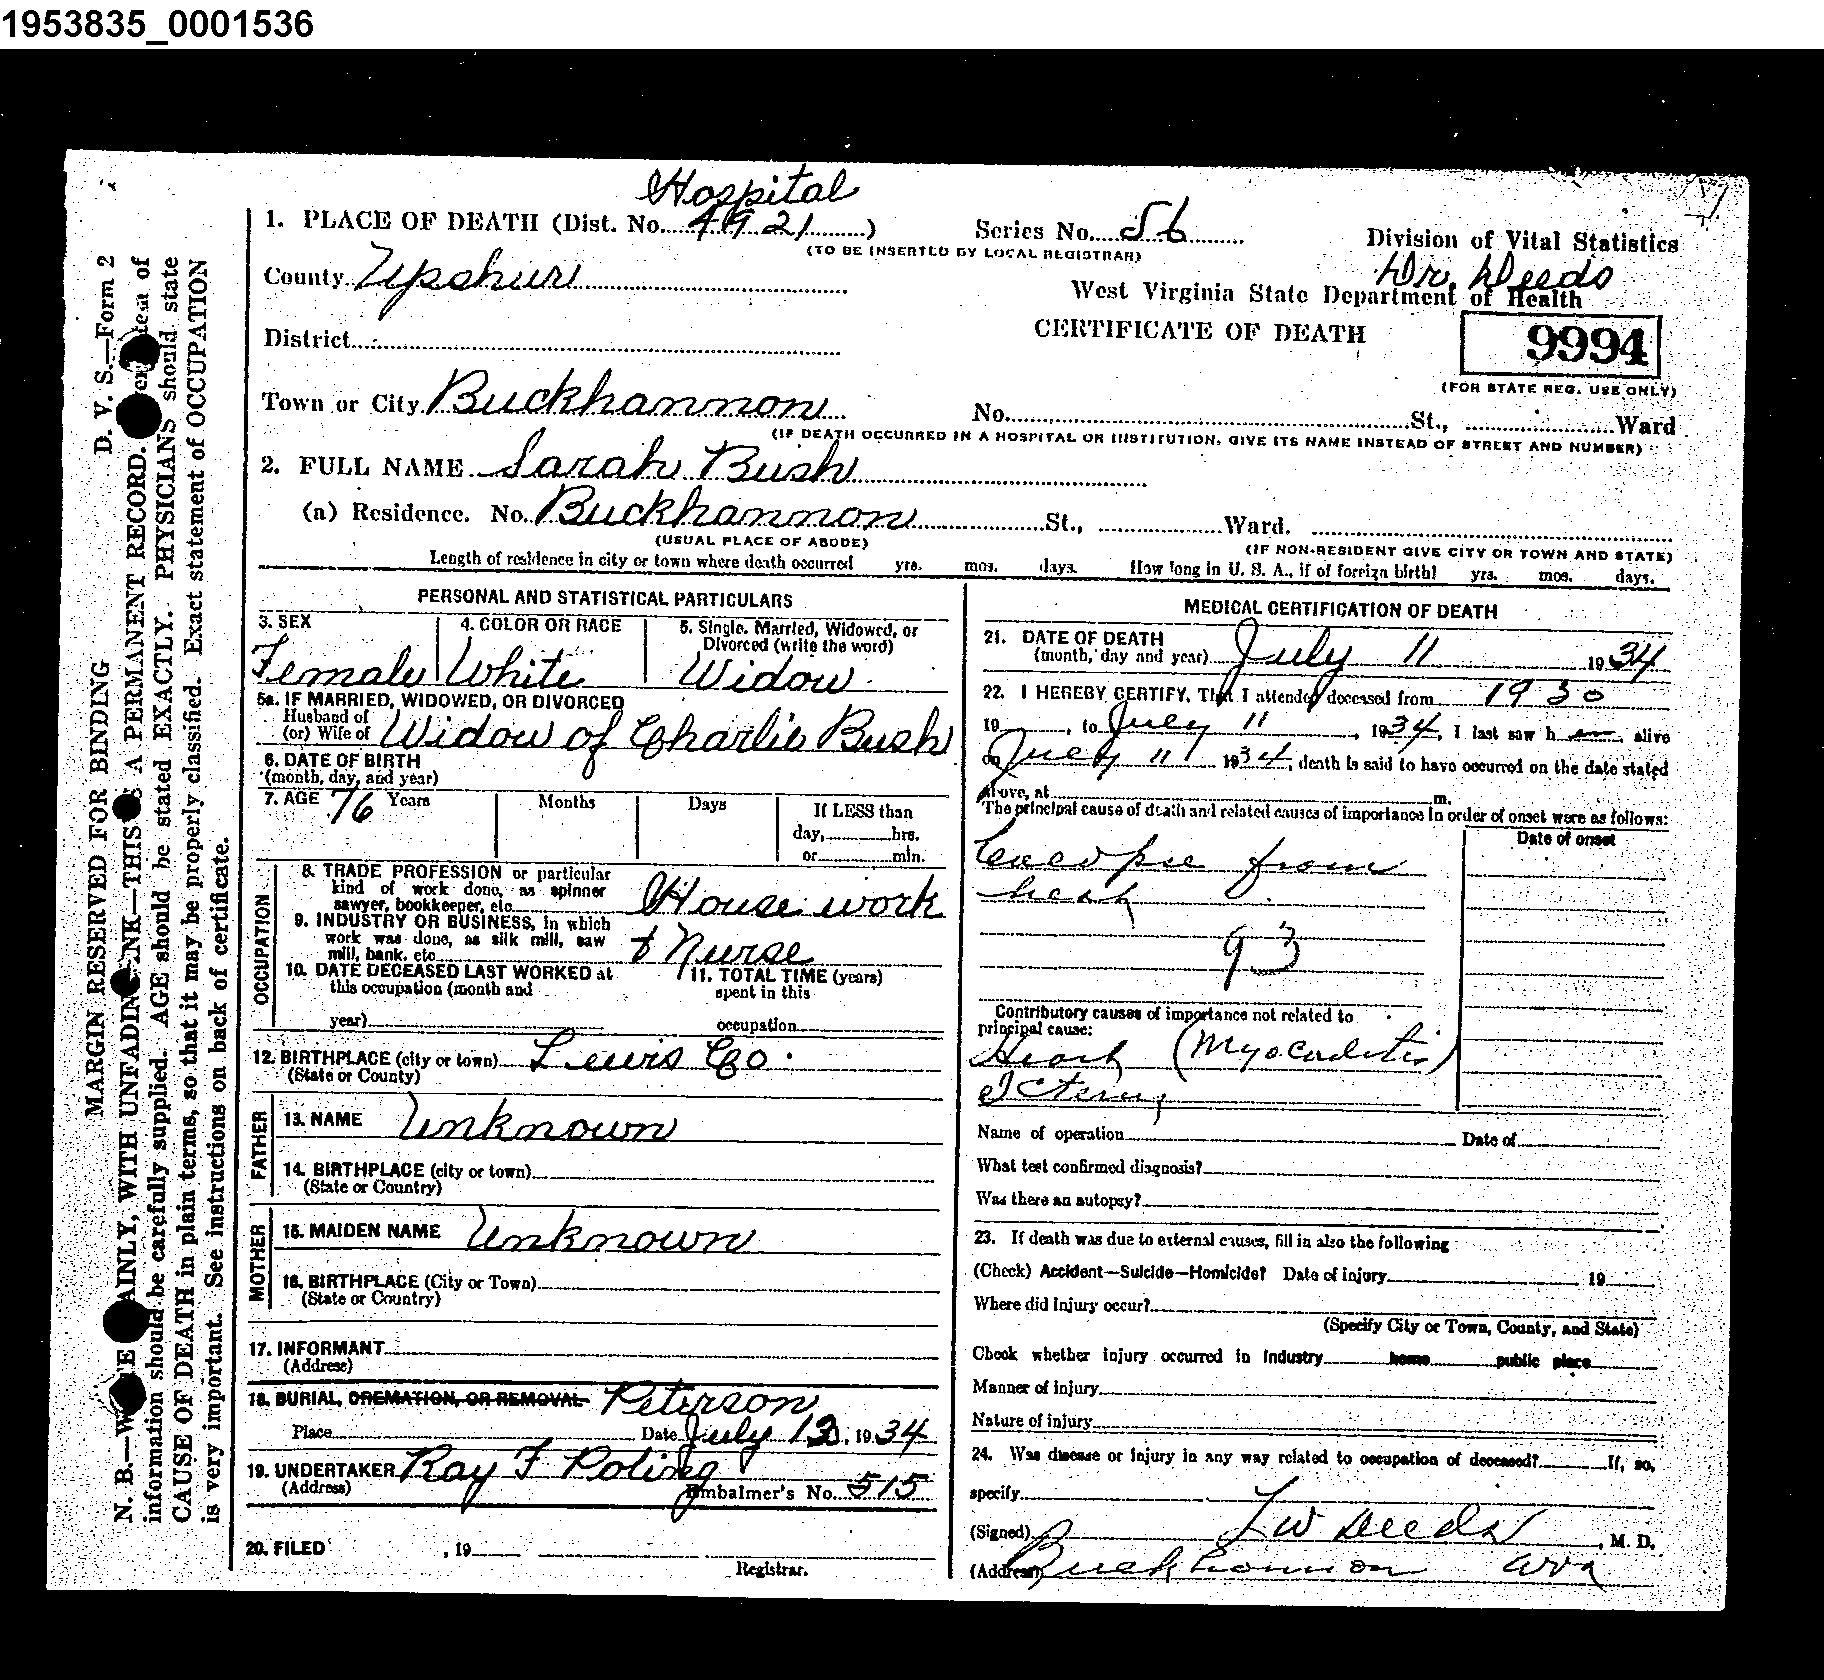 1953835_0001536
Hospital
1. PLACE OF DEATH (Dist. No. 4921) Series No. 56
(TO BE INSERTED BY LOCAL REGISTRAR)
Division of Vital Statistics
Dr. Deeds
County Upshur
West Virginia State Department of Health
CERTIFICATE OF DEATH
9994
District
(FOR STATE REG. USE ONLY)
Town or City Buckhannon No. St., Ward
(IF DEATH OCCURRED IN A HOSPITAL OR INSTITUTION, GIVE ITS NAME INSTEAD OF STREET AND NUMBER)
2. FULL NAME Sarah Bush
(a) Residence. No. Buckhannon St., Ward.
(USUAL PLACE OF ABODE) (IF NON-RESIDENT GIVE CITY OR TOWN AND STATE)
Length of residence in city or town where death occurred yrs. mos. days. How long in U. S. A., if of foreign birth? yrs. mos. days.
PERSONAL AND STATISTICAL PARTICULARS
3. SEX 4. COLOR OR RACE 5. Single, Married, Widowed, or
Divorced (write the word)
Female White Widow
5a. IF MARRIED, WIDOWED, OR DIVORCED
Husband of
(or) Wife of Widow of Charlie Bush
6. DATE OF BIRTH
(month, day, and year)
7. AGE 76 Years Months Days If LESS than
day, hrs.
or min.
OCCUPATION
8. TRADE PROFESSION or particular
kind of work done, as spinner
sawyer, bookkeeper, etc. House work
9. INDUSTRY OR BUSINESS, in which
work was done, as silk mill, saw
mill, bank, etc. & Nurse
10. DATE DECEASED LAST WORKED at
this occupation (month and
year)
11. TOTAL TIME (years)
spent in this
occupation
12. BIRTHPLACE (city or town) Lewis Co.
(State or County)
FATHER
13. NAME Unknown
14. BIRTHPLACE (city or town)
(State or Country)
MOTHER
15. MAIDEN NAME Unknown
16. BIRTHPLACE (City or Town)
(State or Country)
17. INFORMANT
(Address)
18. BURIAL, CREMATION, OR REMOVAL Peterson
Place Date July 13, 1934
19. UNDERTAKER Ray F Poling
(Address) Embalmer's No. 515
20. FILED , 19
Registrar.
MEDICAL CERTIFICATION OF DEATH
21. DATE OF DEATH
(month, day and year) July 11 1934
22. I HEREBY CERTIFY, That I attended deceased from 1930
19 , to July 11 , 1934, I last saw h alive
on July 11 1934, death is said to have occurred on the date stated
above, at m.
The principal cause of death and related causes of importance in order of onset were as follows:
Date of onset
from
93
Contributory causes of importance not related to
principal cause:
Heart (Myocarditis)
Name of operation Date of
What test confirmed diagnosis?
Was there an autopsy?
23. If death was due to external causes, fill in also the following
(Check) Accident—Suicide—Homicide? Date of injury 19
Where did injury occur?
(Specify City or Town, County, and State)
Check whether injury occurred in industry home public place
Manner of injury
Nature of injury
24. Was disease or injury in any way related to occupation of deceased? If, so,
specify
(Signed) L W Deeds, M. D.
(Address) Buckhannon WVa
MARGIN RESERVED FOR BINDING D. V. S.—Form 2
N. B.—W E AINLY, WITH UNFADING INK—THIS S A PERMANENT RECORD. item of
information should be carefully supplied. AGE should be stated EXACTLY. PHYSICIANS should state
CAUSE OF DEATH in plain terms, so that it may be properly classified. Exact statement of OCCUPATION
is very important. See instructions on back of certificate.